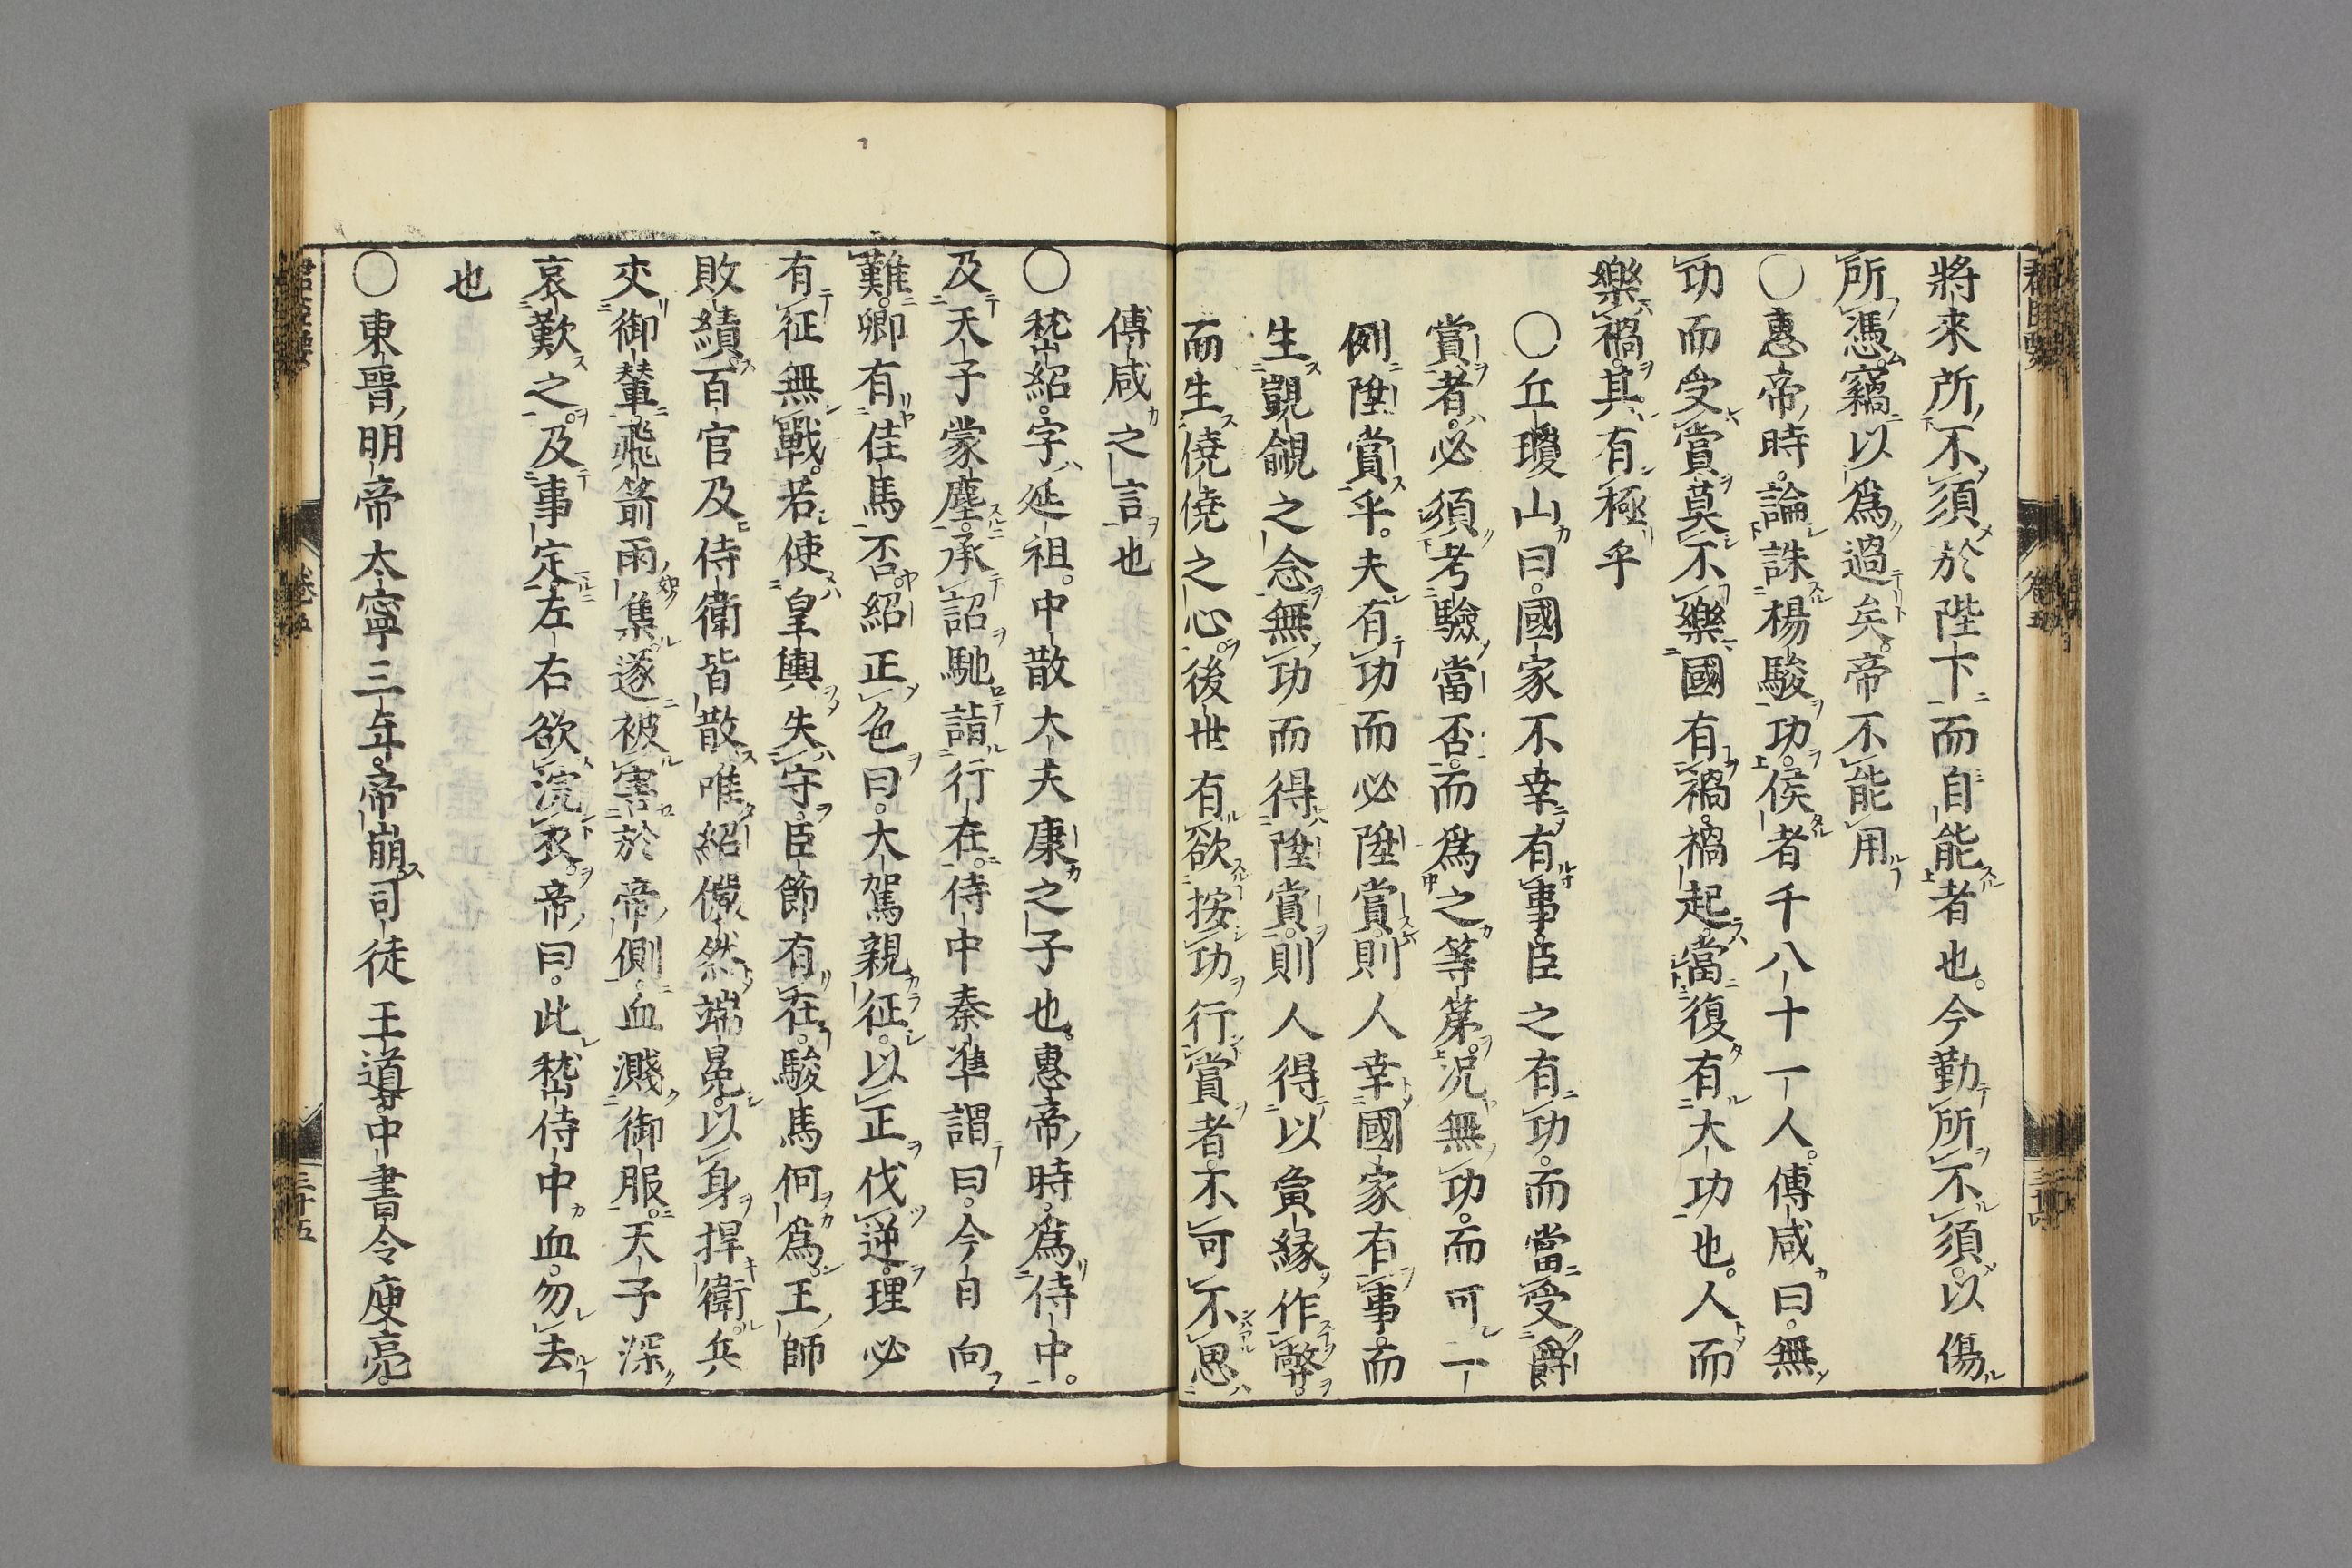 將來所不須於陛下而自能者也。今勤所不須。以傷
所憑。竊以爲過矣。帝不能用
○惠帝時。論誅楊駿功。侯者千八十一人。傅咸曰。無
功而受賞。莫不樂國有禍。禍起。當復有大功也。人而
樂禍。其有極乎
○丘瓊山曰。國家不幸有事。臣之有功。而當受爵
賞者。必須考驗當否。而爲之等第。況無功。而可一
例陞賞乎。夫有功而必陞賞。則人幸國家有事。而
生覬覦之念。無功而得陞賞。則人得以夤緣作弊。
而生僥倖之心。後世有欲按功行賞者。不可不思
傅咸之言也
○嵇紹。字延祖。中散大夫康之子也。惠帝時。爲侍中。
及天子蒙塵。承詔馳詣行在。侍中秦準謂曰。今日向
難。卿有佳馬否。紹正色曰。大駕親征。以正伐逆。理必
有征無戰。若使皇輿失守。臣節有在。駿馬何爲。王師
敗績。百官及侍衛皆散。唯紹儼然端冕。以身捍衛。兵
交御輦。飛箭雨集。遂被害於帝側。血濺御服。天子深
哀歎之。及事定。左右欲浣衣。帝曰。此嵇侍中血。勿去
也
○東晉明帝太寧三年。帝崩。司徒王導。中書令庾亮。
卷五
三十五